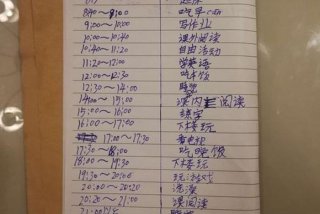 起床
8:40～9:00 吃早饭
9:00～10:00 写作业
10:00～10:40 课外阅读
10:40～11:20 自由活动
11:20～12:00 学英语
12:00～12:30 吃午饭
12:30～14:00 睡觉
14:00～15:00 课内阅读
15:00～16:00 练字
16:00～17:00 下楼玩
17:00～17:30 看电视
17:30～18:00 吃晚饭
18:00～19:30 下楼玩
19:30～20:00 玩游戏
20:00～20:20 洗澡
20:20～21:00 课阅读
21:00 睡觉